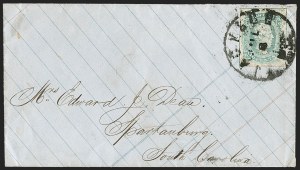 Mrs Edward J. Deas
Spartanburg
South Carolina